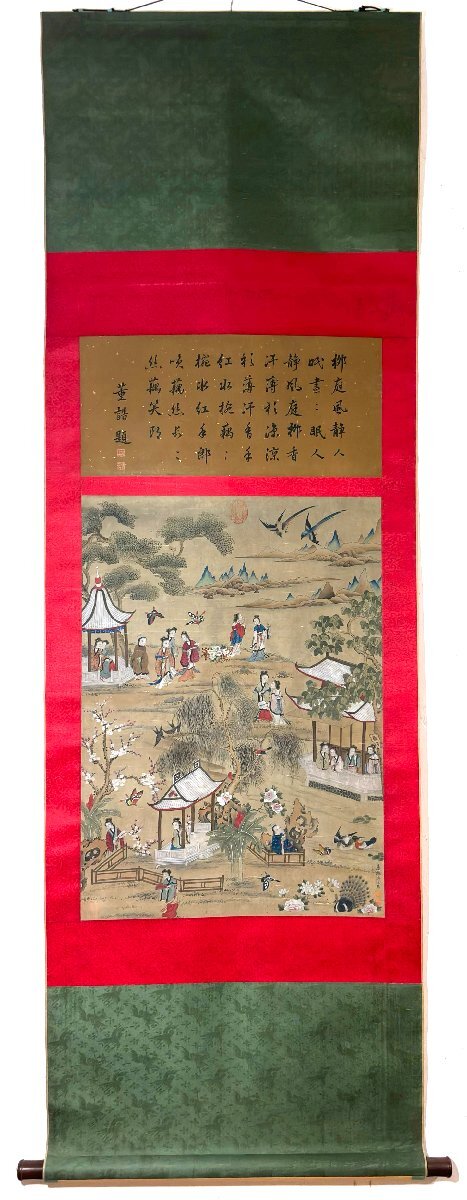 柳庭風靜人
眠晝〻眠人
靜風庭柳香
汗薄衫涼涼
衫薄汗香手
紅冰椀藕〻
椀冰紅手郎
咲藕絲長〻
絲藕笑郎
董誥題